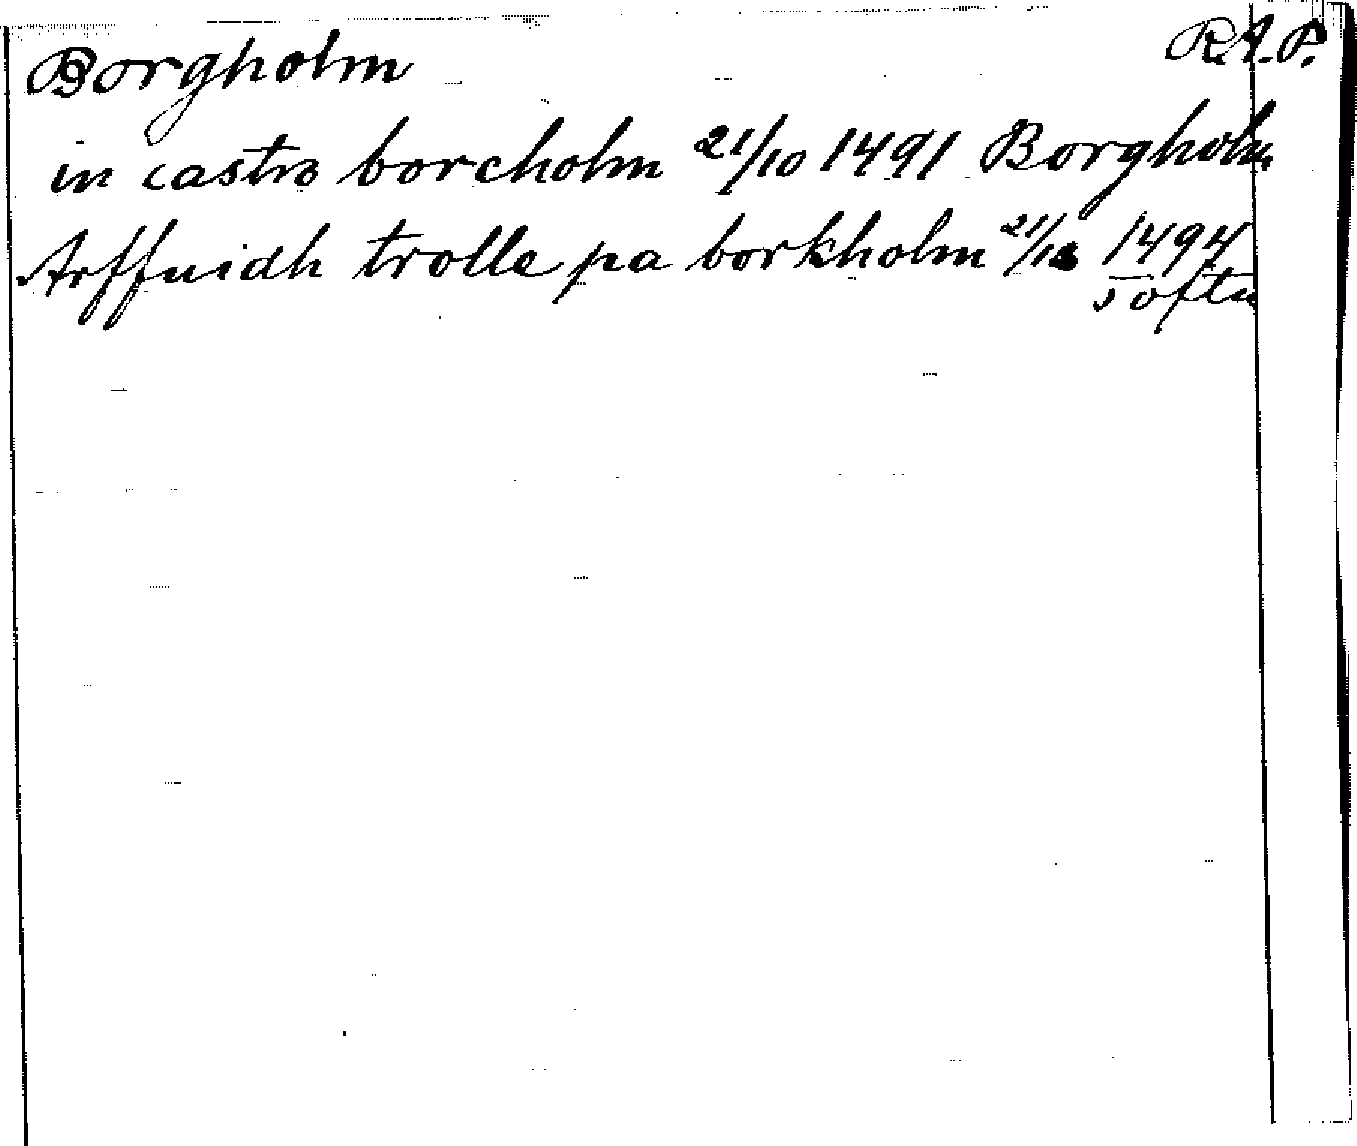 Borgholm R.A.P.
in castro borcholm 21/10 1491 Borgholm
Arffuidh trolle pa borkholm 1494
Tofta